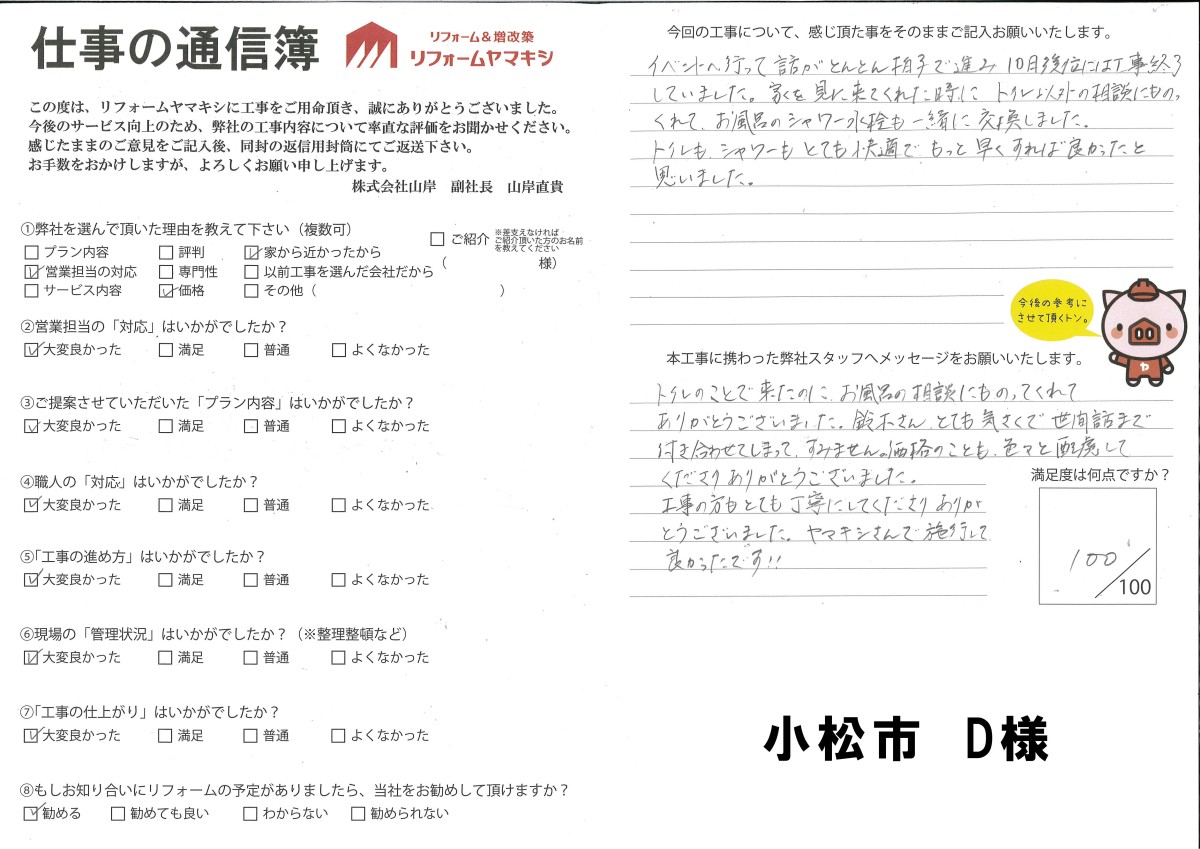 仕事の通信簿
リフォーム&増改築
リフォームヤマキシ
この度は、リフォームヤマキシに工事をご用命頂き、誠にありがとうございました。
今後のサービス向上のため、弊社の工事内容について率直な評価をお聞かせください。
感じたままのご意見をご記入後、同封の返信用封筒にてご返送下さい。
お手数をおかけしますが、よろしくお願い申し上げます。
株式会社山岸 副社長 山岸直貴
①弊社を選んで頂いた理由を教えて下さい(複数可)
□プラン内容 □評判 ☑家から近かったから
☑営業担当の対応 □専門性 □以前工事を選んだ会社だから
□サービス内容 ☑価格 □その他( )
□ご紹介 ※差支えなければ
ご紹介頂いた方のお名前
を教えてください
( 様)
②営業担当の「対応」はいかがでしたか?
☑大変良かった □満足 □普通 □よくなかった
③ご提案させていただいた「プラン内容」はいかがでしたか?
☑大変良かった □満足 □普通 □よくなかった
④職人の「対応」はいかがでしたか?
☑大変良かった □満足 □普通 □よくなかった
⑤「工事の進め方」はいかがでしたか?
☑大変良かった □満足 □普通 □よくなかった
⑥現場の「管理状況」はいかがでしたか?(※整理整頓など)
☑大変良かった □満足 □普通 □よくなかった
⑦「工事の仕上がり」はいかがでしたか?
☑大変良かった □満足 □普通 □よくなかった
⑧もしお知り合いにリフォームの予定がありましたら、当社をお勧めして頂けますか?
☑勧める □勧めても良い □わからない □勧められない
今回の工事について、感じ頂た事をそのままご記入お願いいたします。
イベントへ行って話がとんとん拍子で進み10月後位には工事終了
していました。家を見に来てくれた時にトイレ以外の相談にものっ
くれて、お風呂のシャワー水栓も一緒に交換しました。
トイレも、シャワーもとても快適でもっと早くすれば良かったと
思いました。
今後の参考に
させて頂くトン。
ヤ
本工事に携わった弊社スタッフへメッセージをお願いいたします。
トイレのことで来たのに、お風呂の相談にものってくれて
ありがとうございました。鈴木さん、とても気さくで世間話まで
付き合わせてしまって、すみません。価格のことも、色々と配慮して
くださりありがとうございました。
工事の方もとても丁寧にしてくださりありが
とうございました。ヤマキシさんで施行して
良かったです!!
満足度は何点ですか?
100/100
小松市 D様